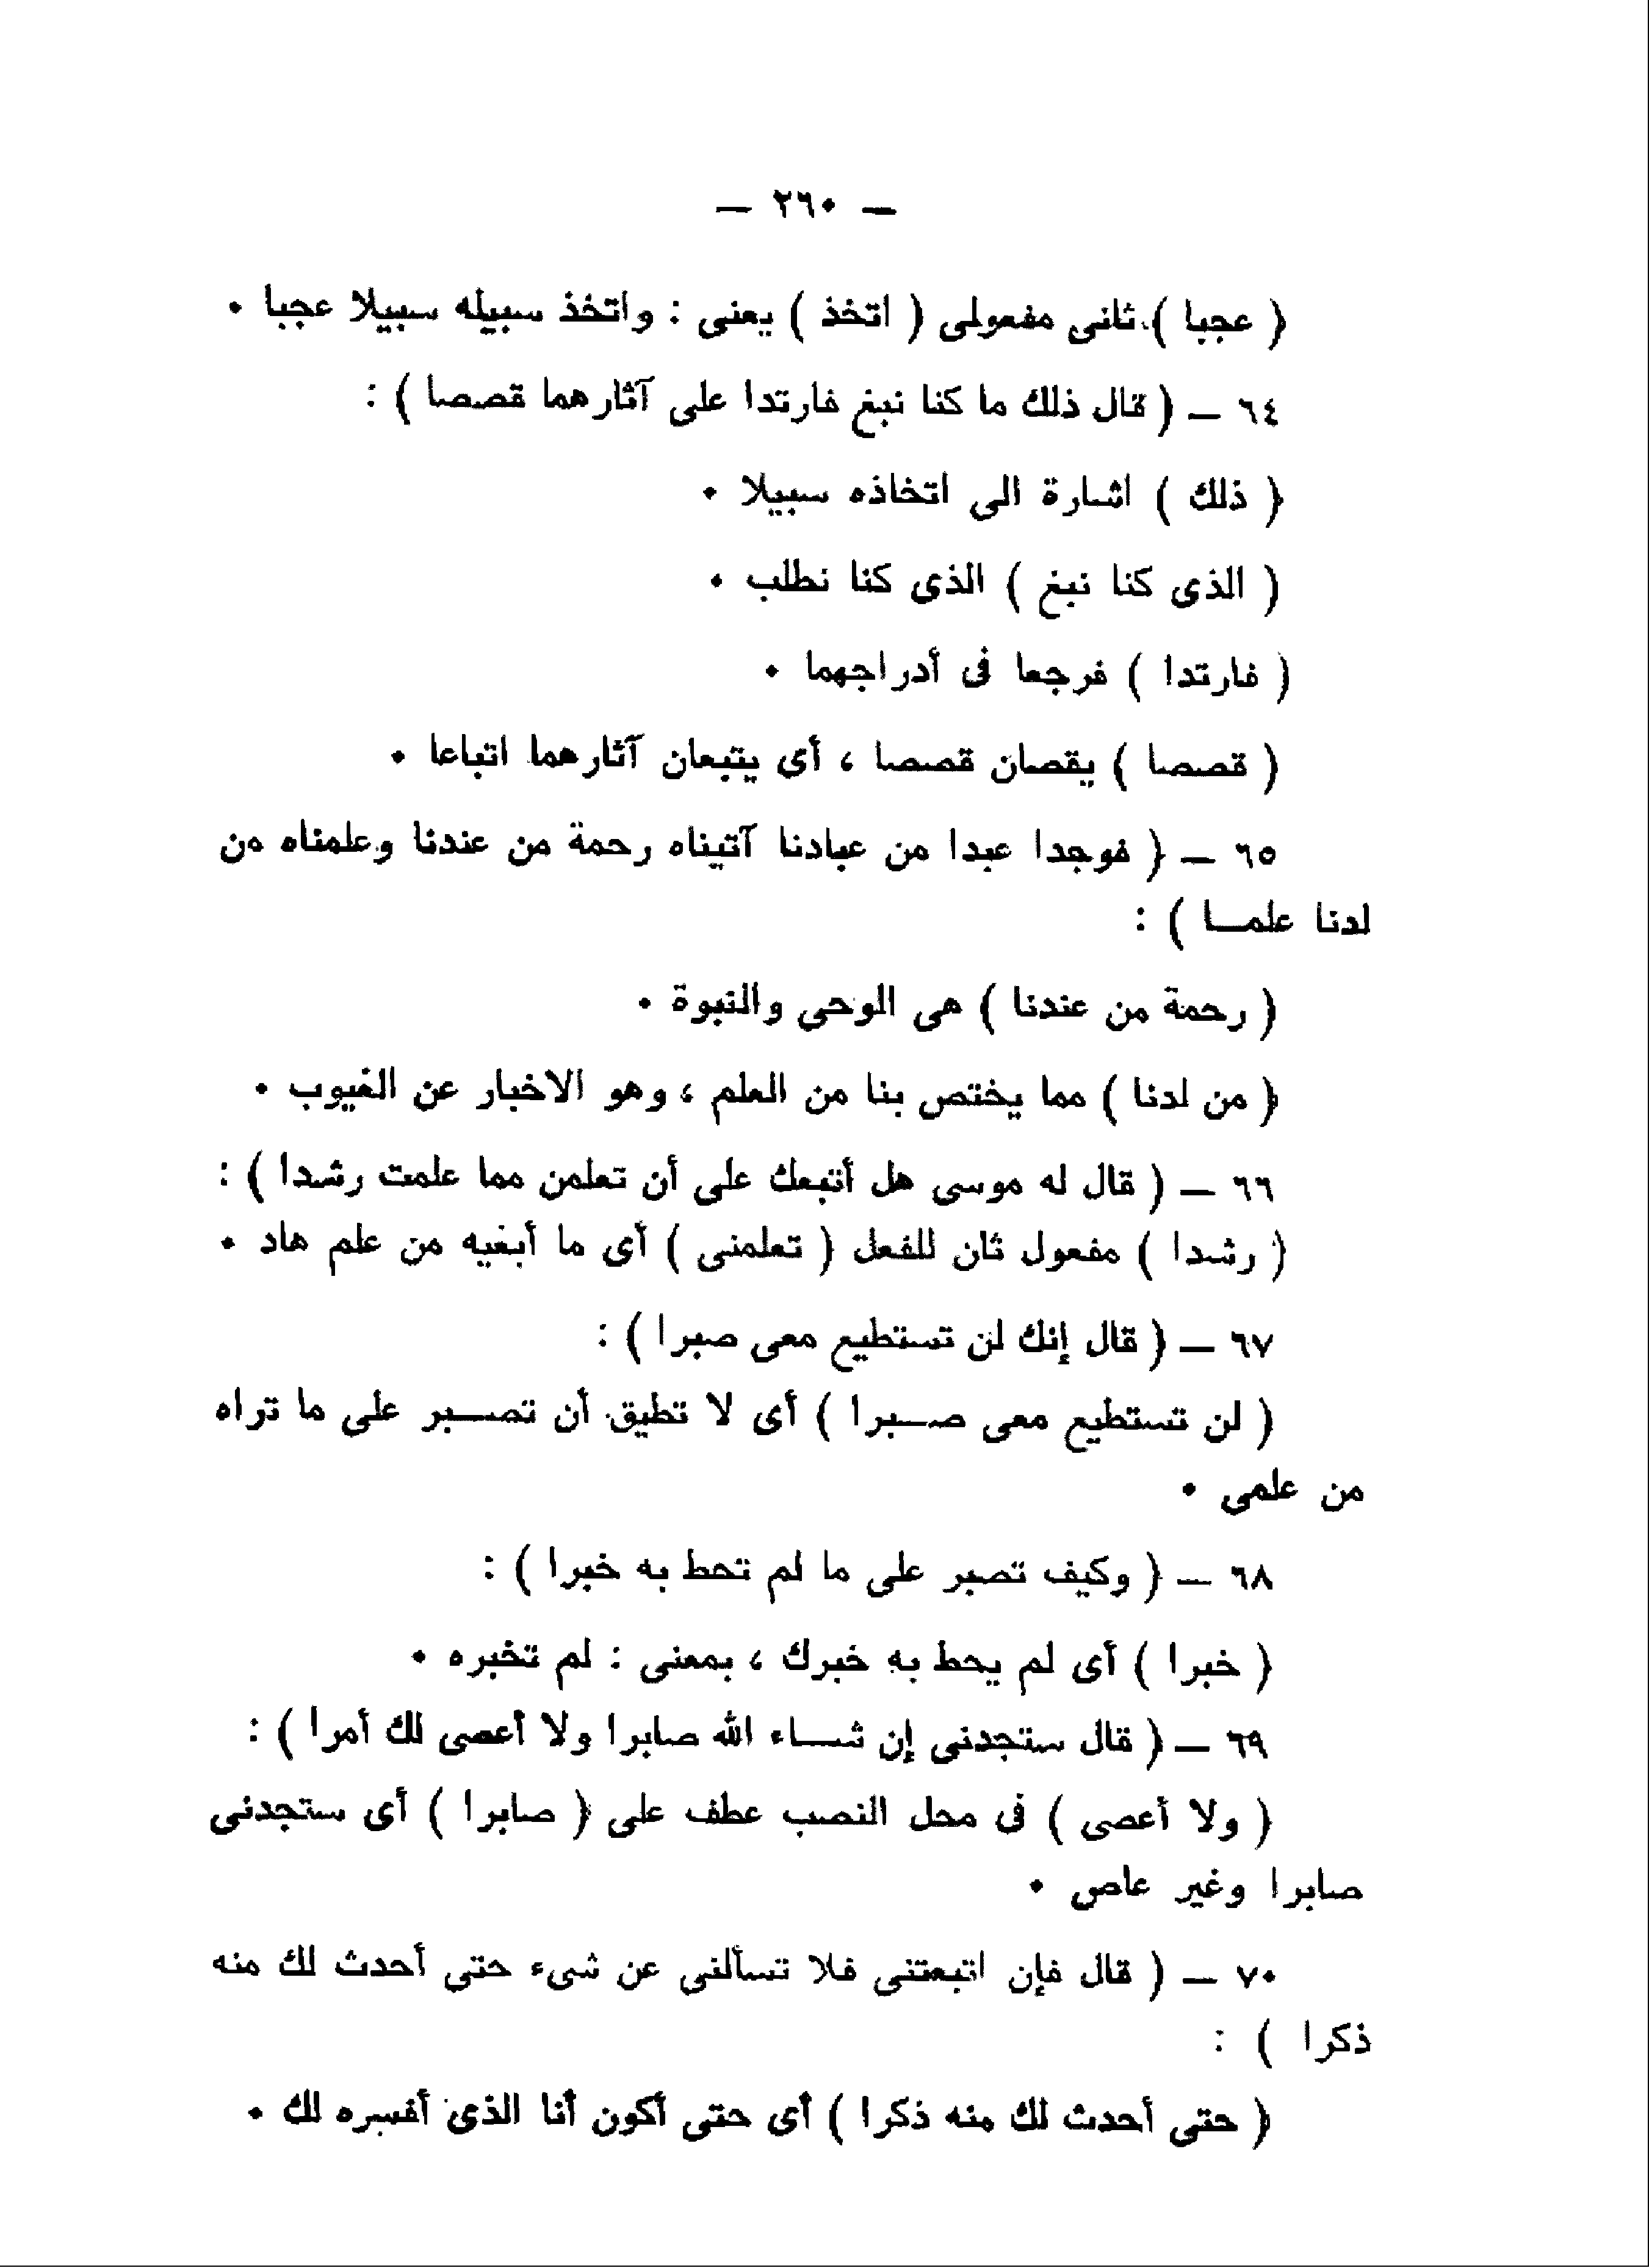 — ٢٦٠ —
( عجبا ) ثانى مفعولى ( اتخذ ) يعنى : واتخذ سبيله سبيلا عجبا •
٦٤ — ( قال ذلك ما كنا نبغ فارتدا على آثارهما قصصا ) :
( ذلك ) اشارة الى اتخاذه سبيلا •
( الذى كنا نبغ ) الذى كنا نطلب •
( فارتدا ) فرجعا فى أدراجهما •
( قصصا ) يقصان قصصا ، أى يتبعان آثارهما اتباعا •
٦٥ — ( فوجدا عبدا من عبادنا آتيناه رحمة من عندنا وعلمناه من
لدنا علمــا ) :
( رحمة من عندنا ) هى الوحى والنبوة •
( من لدنا ) مما يختص بنا من العلم ، وهو الاخبار عن الغيوب •
٦٦ — ( قال له موسى هل أتبعك على أن تعلمن مما علمت رشدا ) :
( رشدا ) مفعول ثان للفعل ( تعلمنى ) أى ما أبغيه من علم هاد •
٦٧ — ( قال إنك لن تستطيع معى صبرا ) :
( لن تستطيع معى صــبرا ) أى لا تطيق أن تصــبر على ما تراه
من علمى •
٦٨ — ( وكيف تصبر على ما لم تحط به خبرا ) :
( خبرا ) أى لم يحط به خبرك ، بمعنى : لم تخبره •
٦٩ — ( قال ستجدنى إن شــاء الله صابرا ولا أعصى لك أمرا ) :
( ولا أعصى ) فى محل النصب عطف على ( صابرا ) أى ستجدنى
صابرا وغير عاص •
٧٠ — ( قال فإن اتبعتنى فلا تسألنى عن شىء حتى أحدث لك منه
ذكرا ) :
( حتى أحدث لك منه ذكرا ) أى حتى أكون أنا الذى أفسره لك •